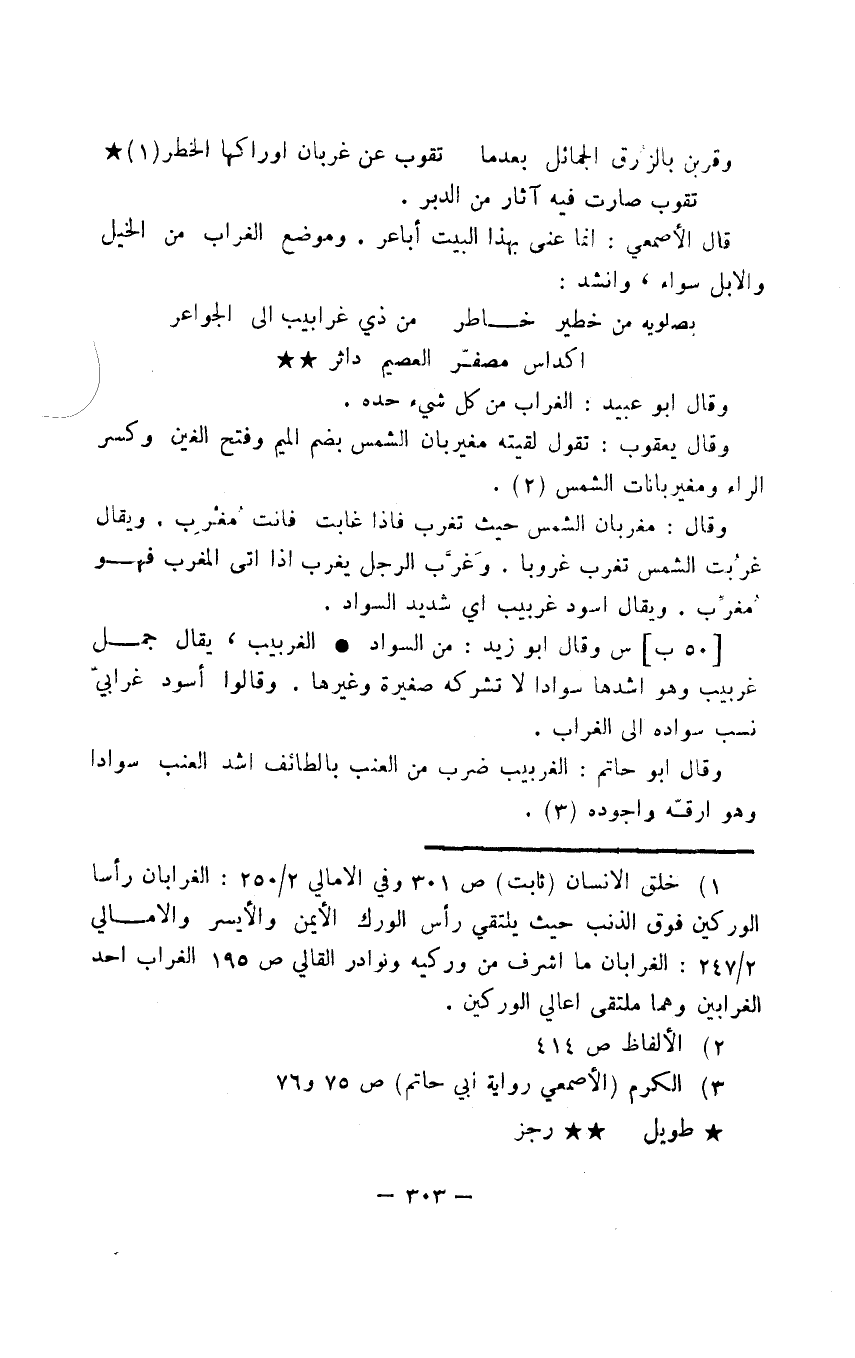 وقربن بالزُرق الجمائل بعدما تقوب عن غربان اوراكها الخطر(١)★
تقوب صارت فيه آثار من الدبر .
قال الأصمعي : انما عنى بهذا البيت أباعر . وموضع الغراب من الخيل
والابل سواء ، وانشد :
بصلويه من خطير خـــاطر من ذي غرابيب الى الجواعر
اكداس مصفـّر العصيم داثر ★★
وقال ابو عبيد : الغراب من كل شيء حده .
وقال يعقوب : تقول لقيته مغيربان الشمس بضم الميم وفتح الغين وكسر
الراء ومغيربانات الشمس (٢) .
وقال : مغربان الشمس حيث تغرب فاذا غابت فانت مُغْرِب . ويقال
غرُبت الشمس تغرب غروبا . وَغرَّب الرجل يغرب اذا اتى المغرب فهـــو
مُغرِّب . ويقال اسود غربيب اي شديد السواد .
[٥٠ ب] س وقال ابو زيد : من السواد ● الغربيب ، يقال جمـــل
غربيب وهو اشدها سوادا لا تشركه صغيرة وغيرها . وقالوا أسود غرابيّ
نسب سواده الى الغراب .
وقال ابو حاتم : الغربيب ضرب من العنب بالطائف اشد العنب سوادا
وهو ارقـّه واجوده (٣) .
١) خلق الانسان (ثابت) ص ٣٠١ وفي الامالي ٢/٢٥٠ : الغرابان رأسا
الوركين فوق الذنب حيث يلتقي رأس الورك الأيمن والأيسر والامـــالي
٢/٢٤٧ : الغرابان ما اشرف من وركيه ونوادر القالي ص ١٩٥ الغراب احد
الغرابين وهما ملتقى اعالي الوركين .
٢) الألفاظ ص ٤١٤
٣) الكرم (الأصمعي رواية أبي حاتم) ص ٧٥ و٧٦
★ طويل ★★ رجز
— ٣٠٣ —